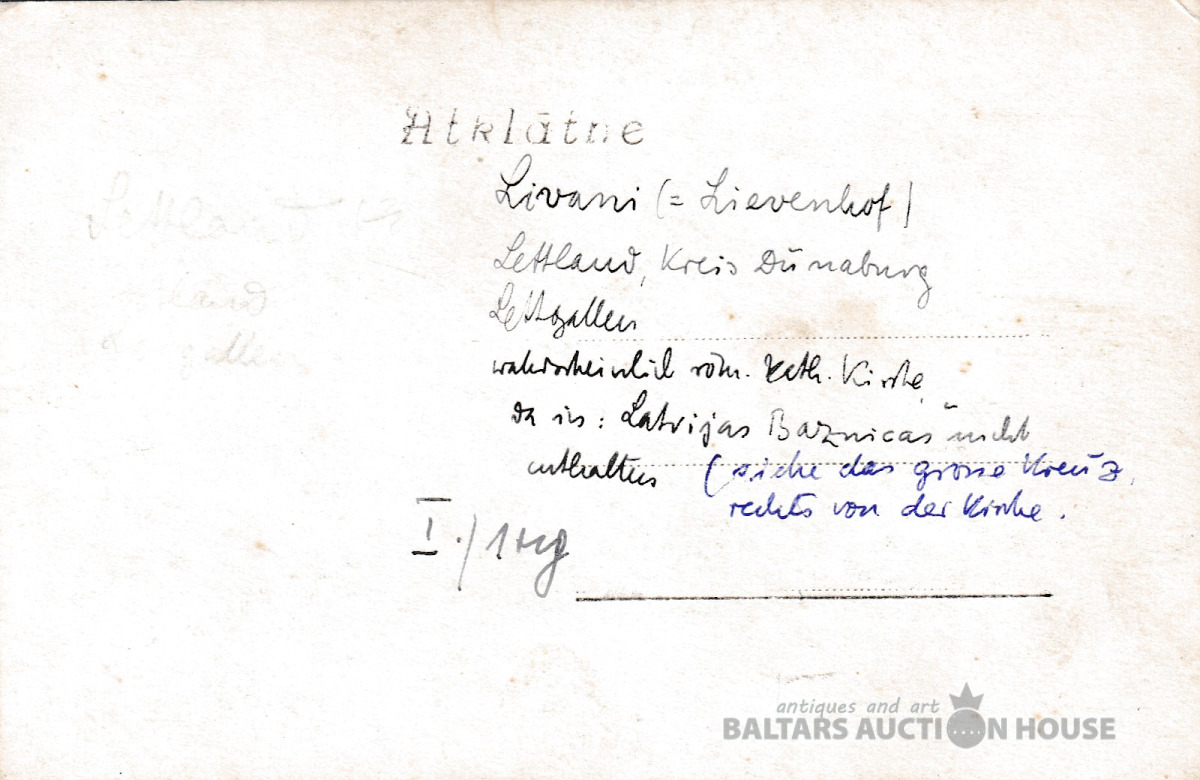 Atklātne
Livani (= Lievenhof)
Lettland, Kreis Dünaburg
Lettgallen
wahrscheinlich röm. kath. Kirche,
da in: Latvijas Baznicas" nicht
enthalten (siehe das grosse Kreuz,
rechts von der Kirche.
I./
Lettland
gallen
antiques and art
BALTARS AUCTION HOUSE